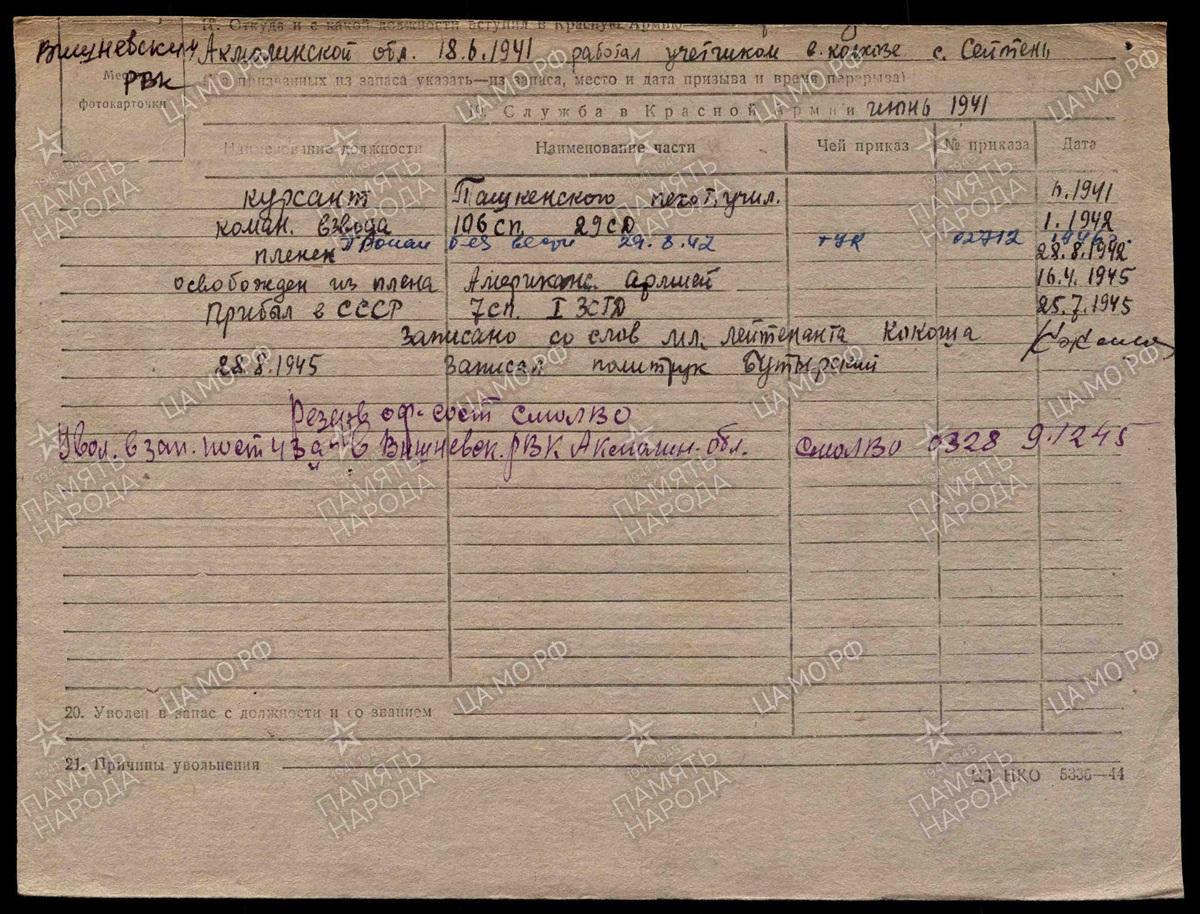 17. Откуда и с какой должности вступил в Красную Армию
Вишневский Акмолинской обл. 18.6.1941 работал учетчиком в колхозе с. Сейтень
РВК
Место фотокарточки
(для призванных из запаса указать—из запаса, место и дата призыва и время перерыва)
19. Служба в Красной Армии июнь 1941
Наименование должности Наименование части Чей приказ № приказа Дата
курсант Ташкенского пехот. учил. 1941
коман. взвода 106 сп. 29 сд 1.1942
Пропал без вести 29.8.42 ГУК 02712
пленен 28.8.1942
освобожден из плена Американс. армией 16.4.1945
Прибыл в СССР 7 сп. I ЗСГД 25.7.1945
Записано со слов мл. лейтенанта Кокоща
28.8.1945 Записал политрук Бутырский
Резерв оф. сост СмолВО
Увол. в зап. по ст 43 а в Вишневск. РВК Акмолин. обл. СмолВО 0328 9.12 45
20. Уволен в запас с должности и со званием
21. Причины увольнения
ЦТ НКО 5335—44
ЦАМО РФ
1941-1945
ПАМЯТЬ
НАРОДА